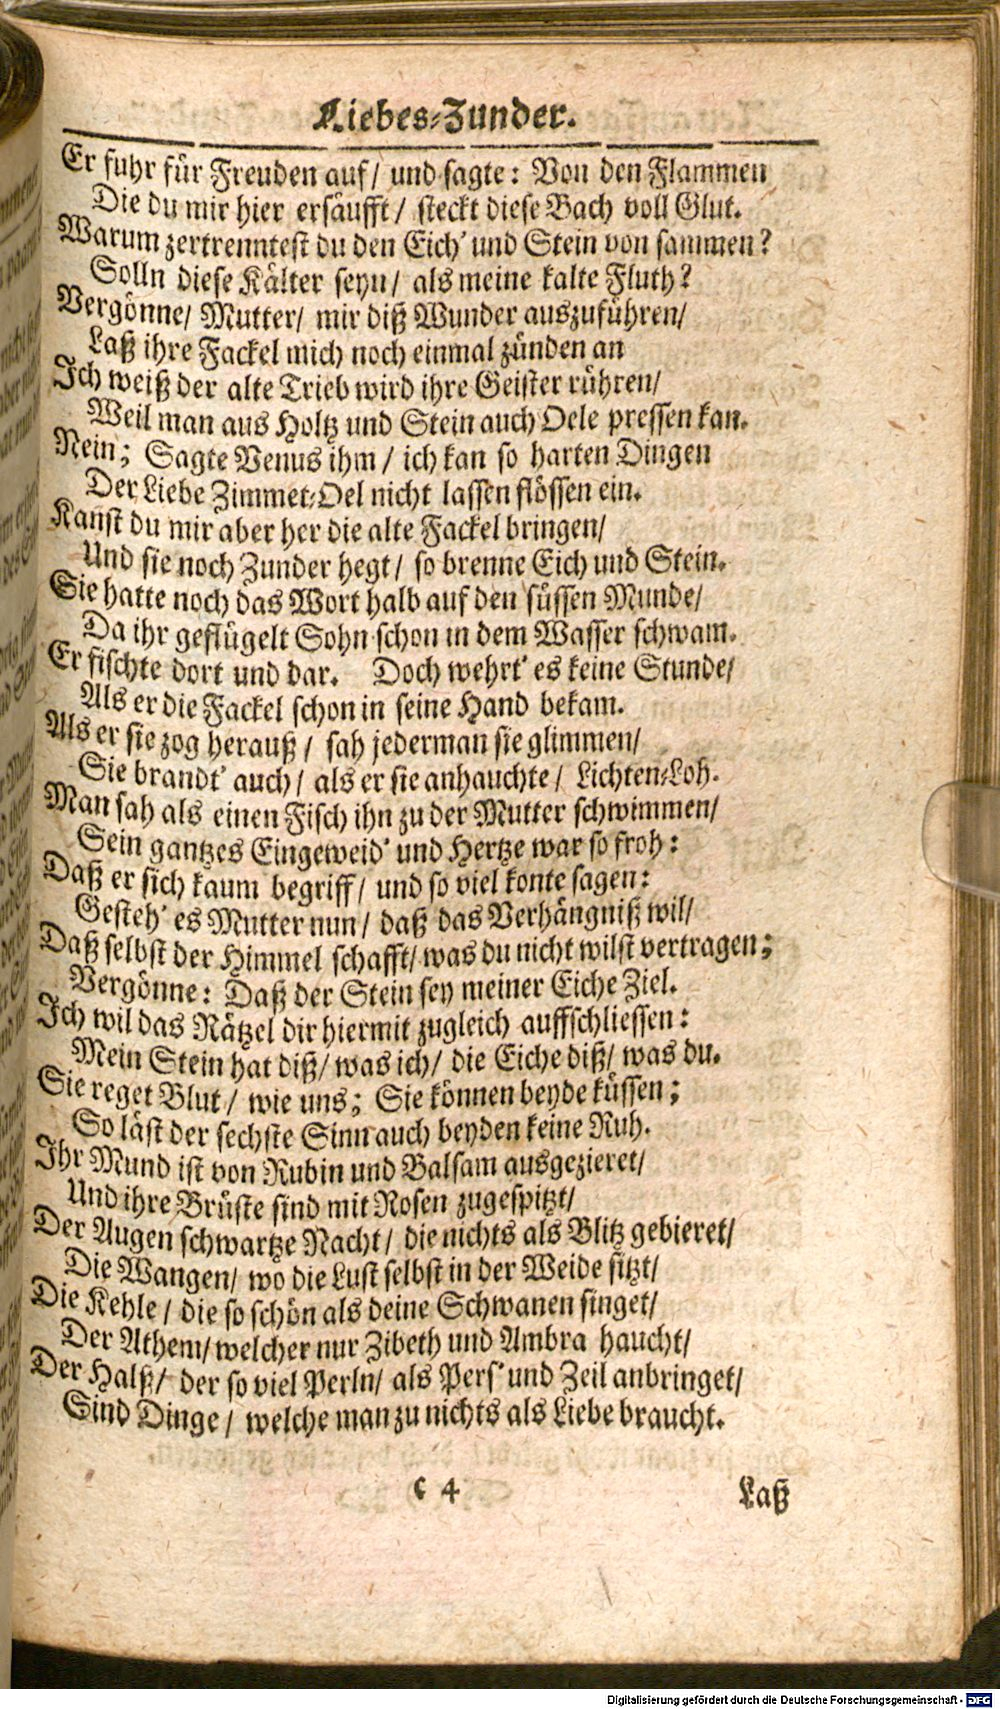 Liebes-Zunder.
Er fuhr für Freuden auf/ und sagte: Von den Flammen
Die du mir hier ersäufft/ steckt diese Bach voll Glut.
Warum zertrenntest du den Eich' und Stein von sammen?
Solln diese Kälter seyn/ als meine kalte Fluth?
Vergönne/ Mutter/ mir diß Wunder auszuführen/
Laß ihre Fackel mich noch einmal zünden an
Ich weiß der alte Trieb wird ihre Geister rühren/
Weil man aus Holtz und Stein auch Oele pressen kan.
Nein; Sagte Venus ihm/ ich kan so harten Dingen
Der Liebe Zimmet-Oel nicht lassen flössen ein.
Kanst du mir aber her die alte Fackel bringen/
Und sie noch Zunder hegt/ so brenne Eich und Stein.
Sie hatte noch das Wort halb auf den süssen Munde/
Da ihr geflügelt Sohn schon in dem Wasser schwam.
Er fischte dort und dar. Doch wehrt' es keine Stunde/
Als er die Fackel schon in seine Hand bekam.
Als er sie zog herauß/ sah jederman sie glimmen/
Sie brandt' auch/ als er sie anhauchte/ Lichten-Loh.
Man sah als einen Fisch ihn zu der Mutter schwimmen/
Sein gantzes Eingeweid' und Hertze war so froh:
Daß er sich kaum begriff/ und so viel konte sagen:
Gesteh' es Mutter nun/ daß das Verhängniß wil/
Daß selbst der Himmel schafft/ was du nicht wilst vertragen;
Vergönne: Daß der Stein sey meiner Eiche Ziel.
Ich wil das Rätzel dir hiermit zugleich auffschliessen:
Mein Stein hat diß/ was ich/ die Eiche diß/ was du.
Sie reget Blut/ wie uns; Sie können beyde küssen;
So läst der sechste Sinn auch beyden keine Ruh.
Ihr Mund ist von Rubin und Balsam ausgezieret/
Und ihre Brüste sind mit Rosen zugespitzt/
Der Augen schwartze Nacht/ die nichts als Blitz gebieret/
Die Wangen/ wo die Lust selbst in der Weide sitzt/
Die Kehle/ die so schön als deine Schwanen singet/
Der Athem/ welcher nur Zibeth und Ambra haucht/
Der Halß/ der so viel Perln/ als Pers' und Zeil anbringet/
Sind Dinge/ welche man zu nichts als Liebe braucht.
C 4
Laß
Digitalisierung gefördert durch die Deutsche Forschungsgemeinschaft - DFG